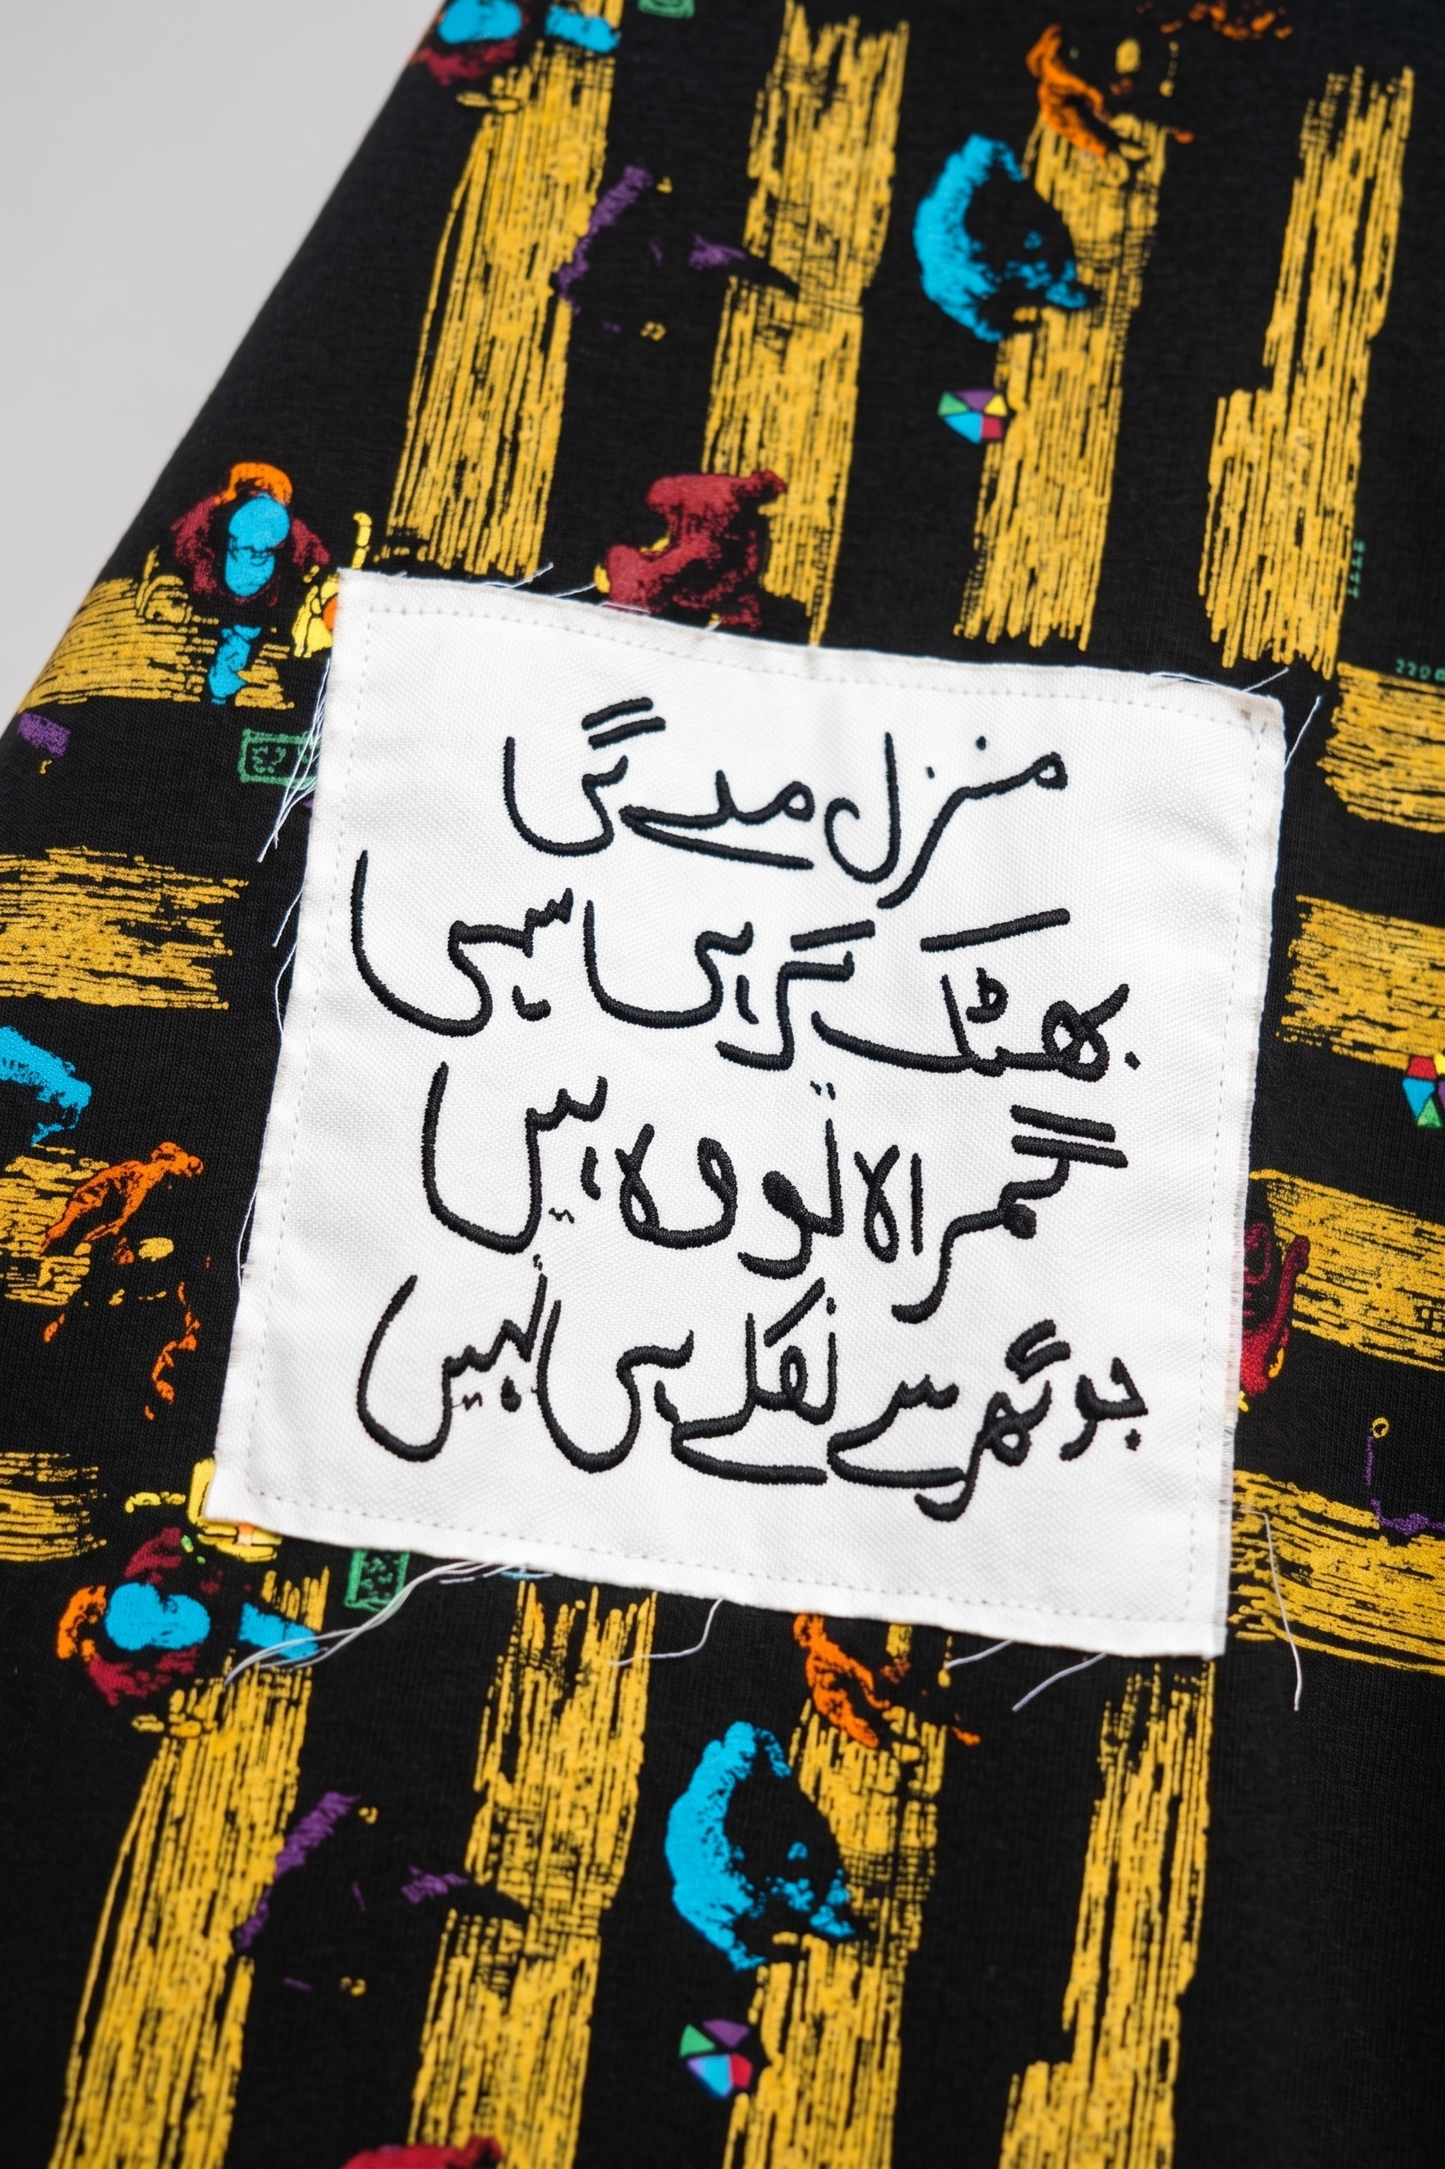 منزل ملے گی
بھٹک کر ہی سہی
گمراہ تو وہ ہیں
جو گھر سے نکلے ہی نہیں